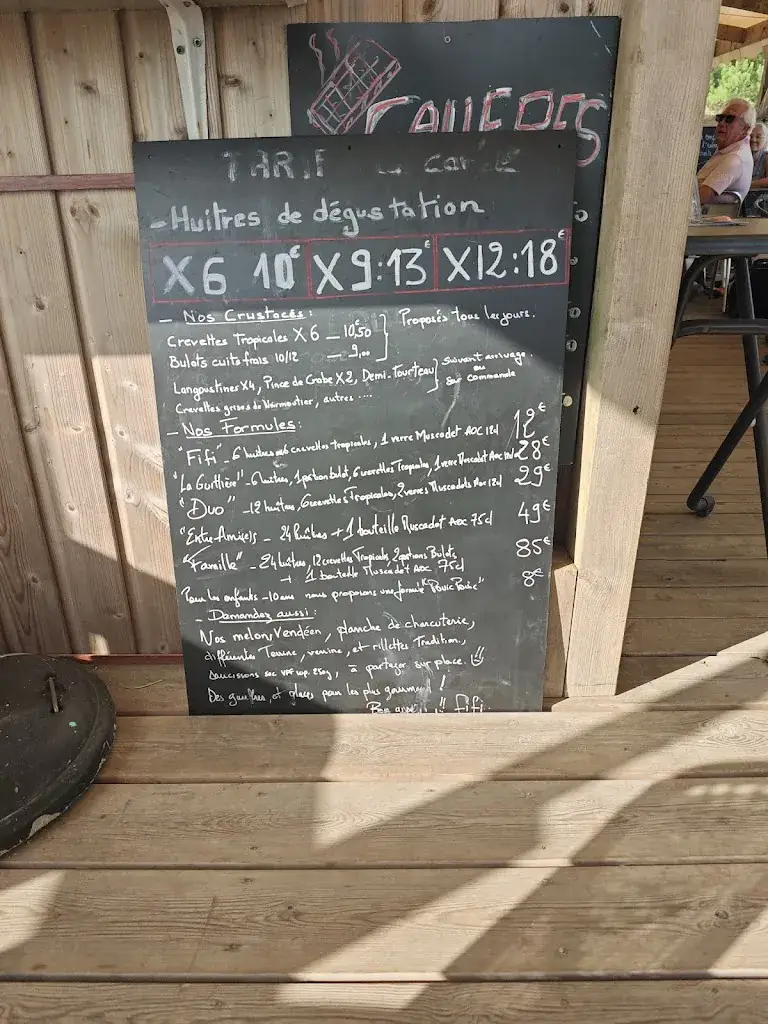 GAUFRES
TARIF carte
- Huitres de dégustation
X6 10€ X9:13€ X12:18€
- Nos Crustacés:
Crevettes Tropicales X 6 - 10,50€
Bulots cuits frais 10/12 - 9,00
Proposés tous les jours.
Langoustines X4, Pince de Crabe X2, Demi-Tourteau
Crevettes grises de Noirmoutier, autres ....
Suivant arrivage.
ou
Sur commande
- Nos Formules:
"Fifi" - 6 huitres crevettes tropicales, 1 verre Muscadet AOC 12cl 12€
"La Guittière" - 6 huitres, 1 portion bulot, 6 crevettes Tropicales, 1 verre Muscadet AOC 28€
"Duo" - 12 huitres, 6 crevettes Tropicales, 2 verres Muscadets AOC 12cl 29€
"Entre-Ami(e)s - 24 huitres + 1 bouteille Muscadet AOC 75cl 49€
"Famille" - 24 huitres, 12 crevettes Tropicales 2 portions Bulots 85€
+ 1 bouteille Muscadet AOC 75cl
Pour les enfants -10 ans nous proposons une formule "Pouic Pouic" 8€
- Demandez aussi:
Nos melon, Vendéen, planche de charcuterie,
différentes Terrine, verrine, et rillettes Tradition,
Saucissons sec VPF sup. 250g, à partager sur place.
Des gaufres, et glaces pour les plus gourmand!
Bon !! Fifi.